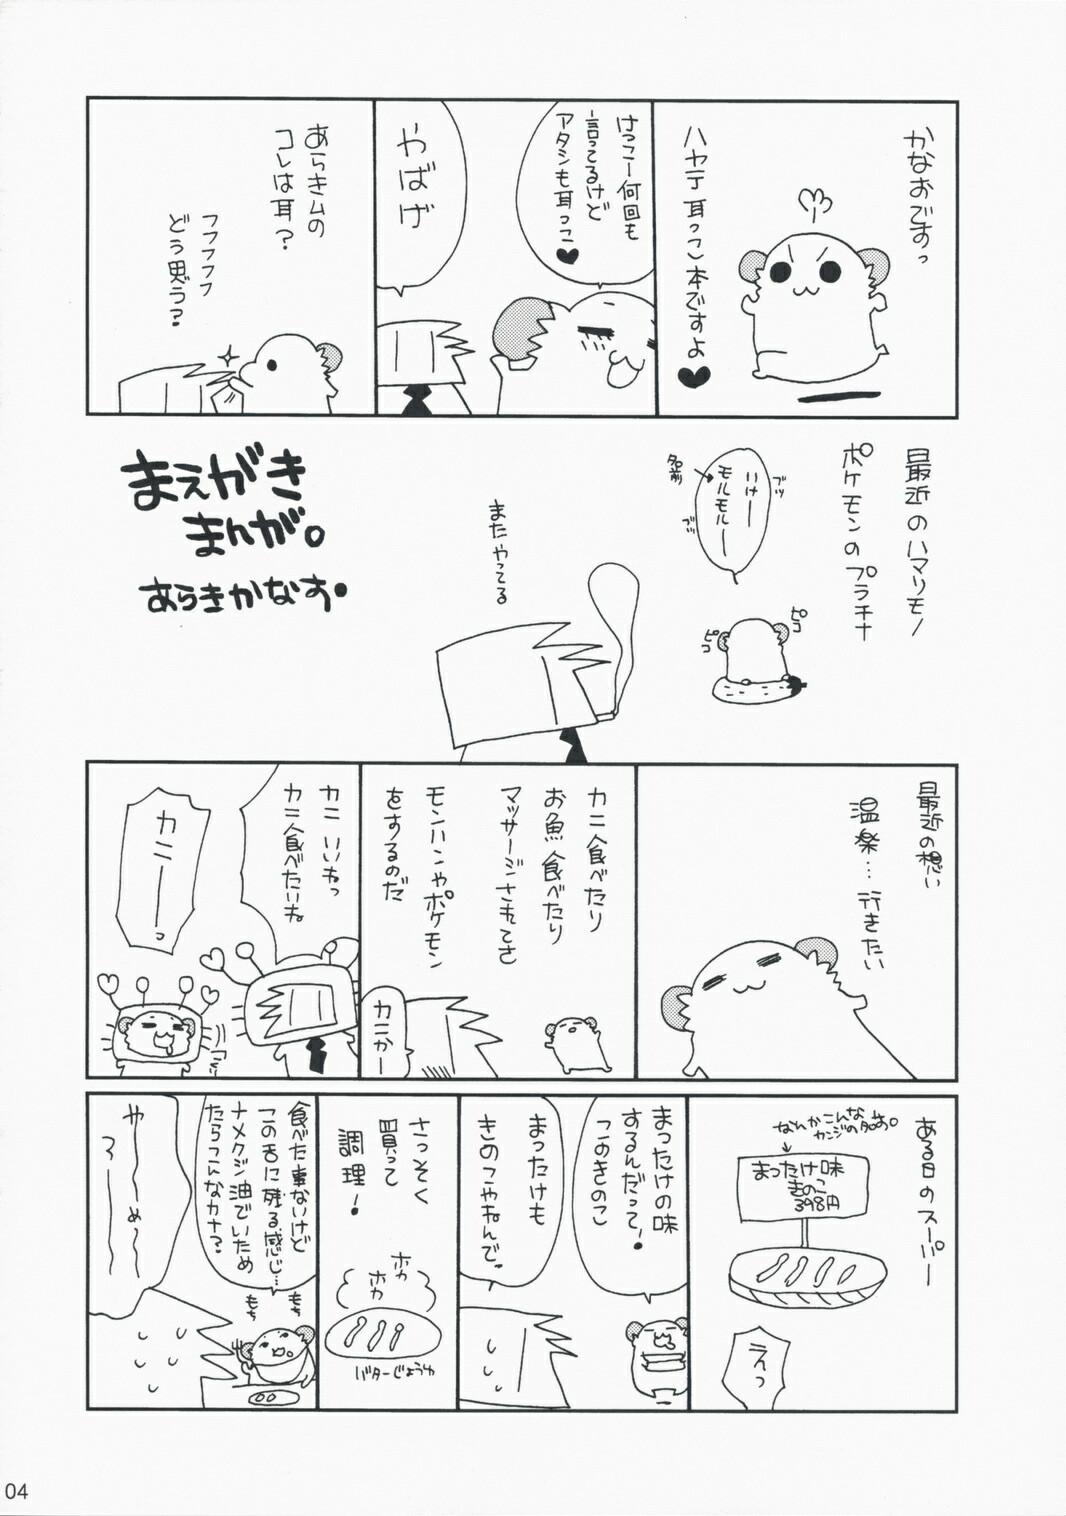 かなおですっ
ハヤテ耳っこ本ですよ♥
けっこー何回も
言ってるけど
アタシも耳っこ♥
やばげ
あらきムの
コレは耳?
フフフフフ
どう思う?
最近のハマリモノ
ポケモンのプラチナ
ブツ
いけー
モルモルー
名前
ブツ
ピコ
ピコ
またやってる
まえがき
まんが。
あらきかなお。
最近の想い
温楽…行きたい
カニ食べたり
お魚食べたり
マッサージされてさ
モンハンやポケモン
をするのだ
カニかー
カニいいねっ
カニ食べたいね
カニーーっ
ある日のスーパー
なんかこんな
カンジの名前。
まったけ味
きのこ
398円
えっ
まったけの味
するんだって!
このきのこ
まったけも
きのこやねんで。
さっそく
買って
調理!
ホカ
ホカ
バターじょうゆ
食べた事ないけど
この舌に残る感じ…
ナメクジ油でいため
たらこんなカナ?
もち
もち
や―――め――
ろ―――
04